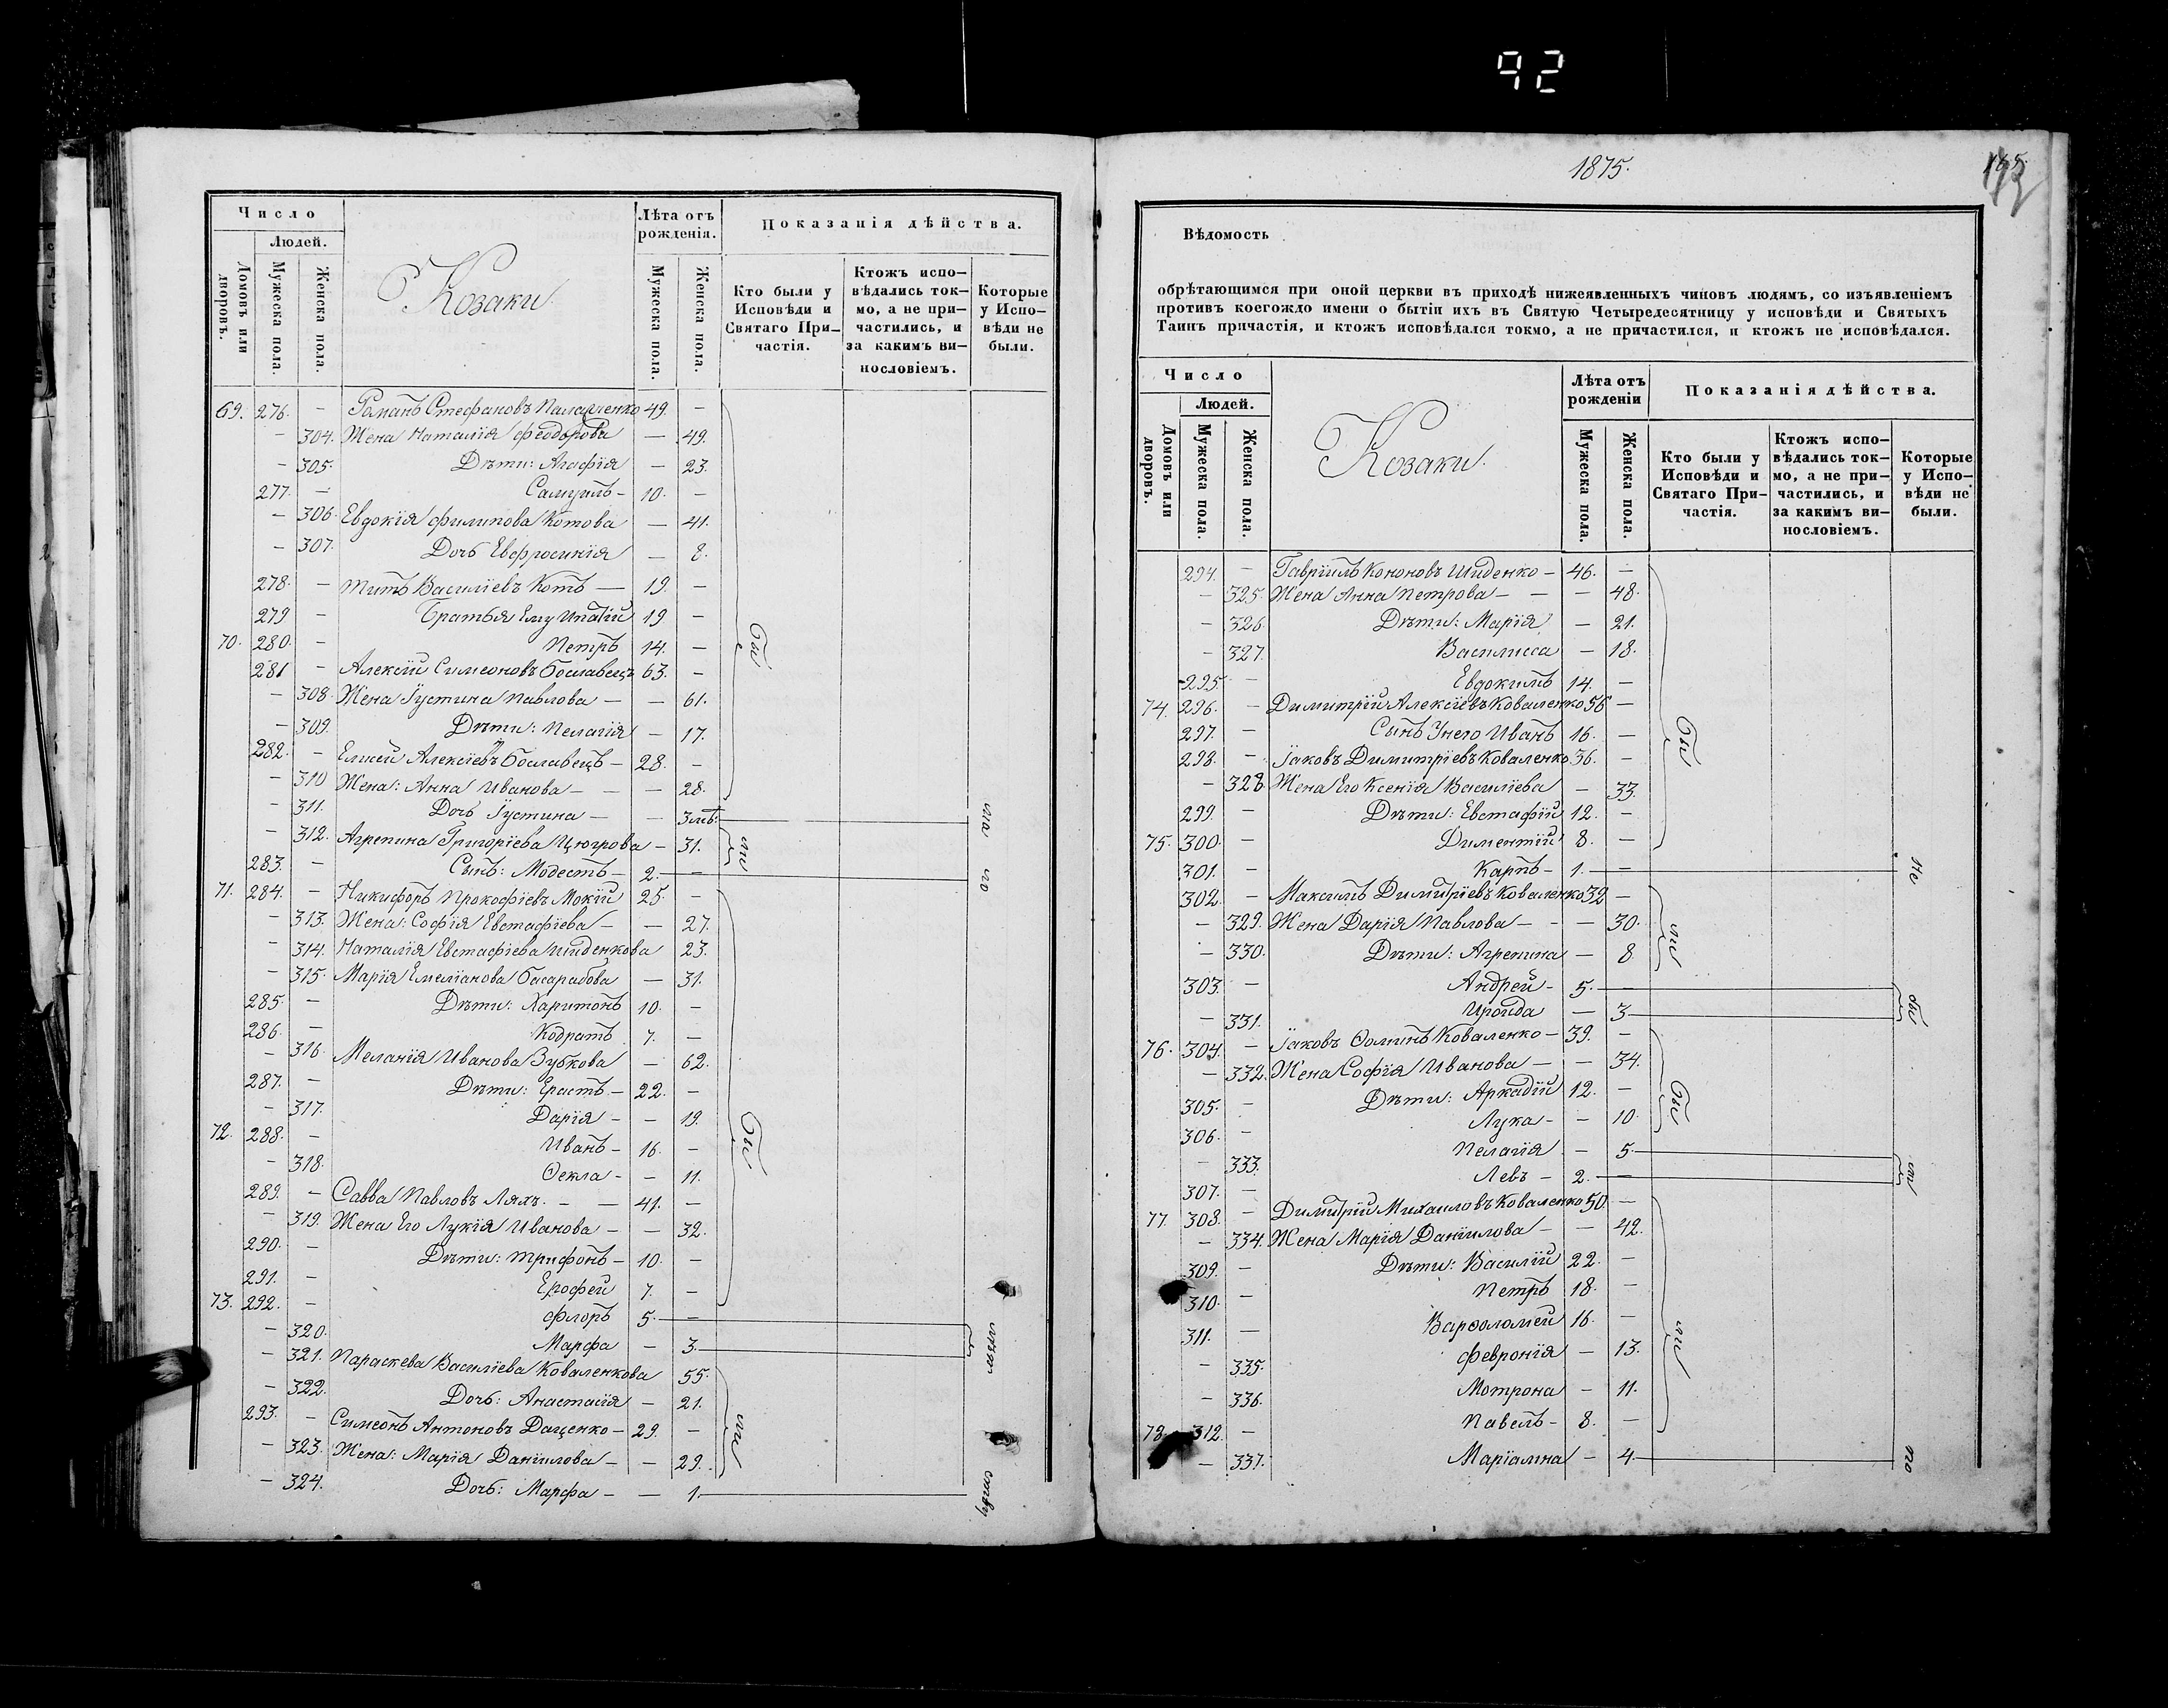 92
Число
Людей.
Домовъ или дворовъ.
Мужеска пола.
Женска пола.
Козаки
Лѣта отъ рожденія.
Мужеска пола.
Женска пола.
Показанія дѣйства.
Кто были у Исповѣди и Святаго Причастія.
Ктожъ исповѣдались токмо, а не причастились, и за какимъ винословіемъ.
Которые у Исповѣди не были.
69. 276. – Романъ Стефановъ 49. –
– 304. Жена Наталія Феодорова – 49.
– 305. Дѣти: Агафія – 23.
277. – Самуилъ – 10. –
– 306. Евдокія Филипова Котова – 41.
– 307. Дочь Евфросинія – 8.
278. – Титъ Василіевъ Котъ – 19. –
279 – Братья Ему Ипатій 19 –
70. 280. – Петръ 14. –
281 – Алексій Симеоновъ Бославецъ 63. –
– 308. Жена Іустина Павлова – – 61.
– 309. Дѣти: Пелагія – 17.
282. – Елисей Алексіевъ Бославецъ – 28. –
– 310 Жена: Анна Иванова – – – 28.
– 311. Дочь Іустина – –
– 312. Агрепина Григоріева – 31.
283. – Сынъ: Модестъ – 2. –
71. 284. – Никифоръ Прокофіевъ Мокій 25. –
– 313. Жена: Софія Евстафіева – – 27.
– 314. Наталія Евстафіева Шиденкова 23.
– 315. Марія Емеліанова Басарабова – 31.
285. – Дѣти: Харитонъ 10. –
286. – Кодратъ 7. –
– 316. Меланія Иванова Зубкова – 62.
287. – Дѣти: Ерастъ – 22. –
– 317. Дарія – – 19.
72. 288. – Иванъ – 16. –
– 318. Ѳекла – – 11.
289. – Савва Павловъ Ляхъ. – – 41. –
– 319. Жена Его Лукія Иванова – – 32.
290. – Дѣти: Трифонъ – 10. –
291. – Ерофей 7. –
73. 292. – Флоръ 5. –
– 320. Марфа – 3.
– 321. Параскева Василіева Коваленкова 55.
– 322. Дочь: Анастасія – 21.
293. – Симеонъ Антоновъ Даценко – 29. –
– 323. Жена: Марія Даніилова – – 29.
– 324. Дочь: Марфа – – 1.
1875.
Вѣдомость
обрѣтающимся при оной церкви въ приходѣ нижеявленныхъ чиновъ людямъ, со изъявленіемъ
противъ коегождо имени о бытіи ихъ въ Святую Четыредесятницу у исповѣди и Святыхъ
Таинъ причастія, и ктожъ исповѣдался токмо, а не причастился, и ктожъ не исповѣдался.
Число
Людей.
Домовъ или дворовъ.
Мужеска пола.
Женска пола.
Козаки.
Лѣта отъ рожденіи
Мужеска пола.
Женска пола.
Показанія дѣйства.
Кто были у Исповѣди и Святаго Причастія.
Ктожъ исповѣдались токмо, а не причастились, и за какимъ винословіемъ.
Которые у Исповѣди не были.
294. – Гавріилъ Кононовъ Шиденко – 46. –
– 325. Жена Анна Петрова – – – 48.
– 326. Дѣти: Марія – 21.
– 327. Василисса – 18.
295. – Евдокимъ 14. –
74. 296. – Димитрій Алексіевъ Коваленко 56 –
297. – Сынъ Унего Иванъ 16. –
298. – Іаковъ Димитріевъ Коваленко 36. –
– 328. Жена Его Ксенія Василіева – 33.
299. – Дѣти: Евстафій 12. –
75. 300. – Дементій 8. –
301. – Карпъ – 1. –
302. – Максимъ Димитріевъ Коваленко 32 –
– 329. Жена Дарія Павлова – – – 30.
– 330. Дѣти: Агрепина – 8
303. – Андрей – 5. –
– 331. Ираида – 3
76. 304. – Іаковъ Ѳоминъ Коваленко – 39. –
– 332. Жена Софія Иванова – – 34.
305. – Дѣти: Аркадій 12. –
306. – Лука – – 10.
– 333. Пелагія – 5.
307. – Левъ – 2. –
77. 308. – Димитрій Михаиловъ Коваленко 50. –
– 334. Жена Марія Даніилова – – 42.
309. – Дѣти: Василій 22. –
310. – Петръ 18. –
311. – Варѳоломей 16. –
– 335. Февронія – 13.
– 336. Мотрона – 11.
78. 312. – Павелъ – 8. –
– 337. Маріамна – 4.